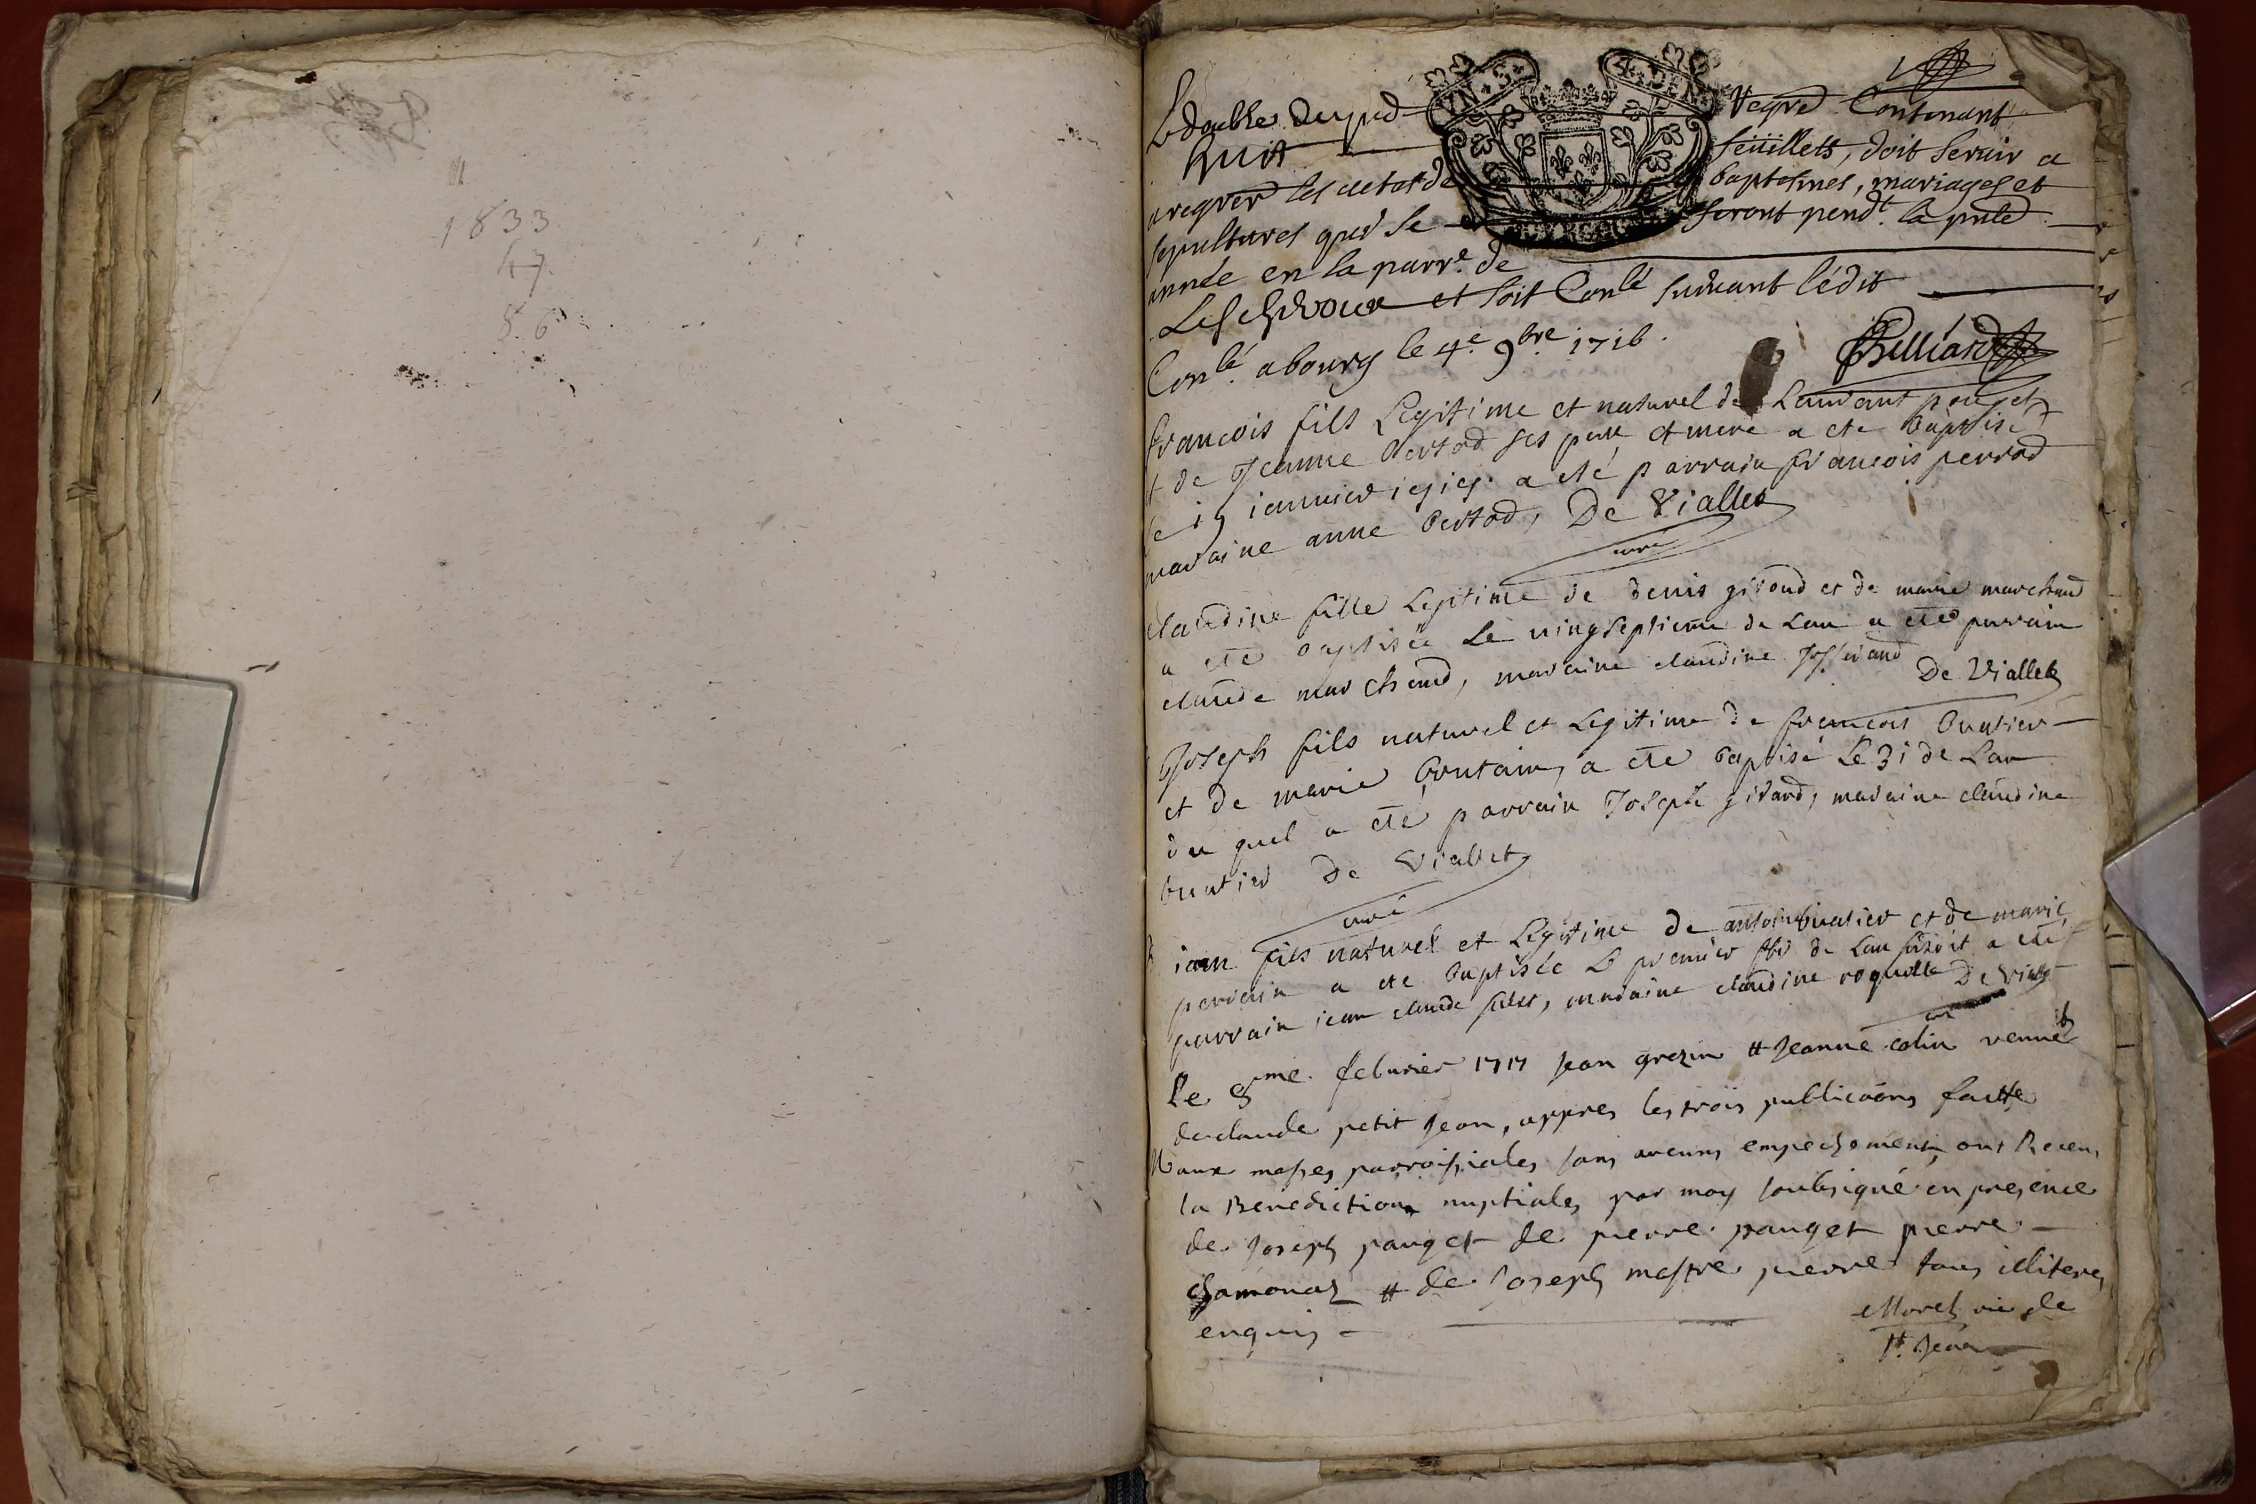 1833
47
56
VN S 4 DEN
Le double du pnt Regre Contenant
huit feüillets, doit servir a
a regrer les actes de baptesmes, mariages et
sepultures qui se feront pendt la pnte
année en la parre de
Lescheroux et soit Conlé suivant lédit
Conlé a bourg le 4e 9bre 1716.
francois fils Legitime et naturel de Laurant pouget
et de Jeanne bertod ses pere et mere a ete baptisé
le janvier a eté parrain francois perrod
maraine anne bertod, De Viallet
curé
claudine fille Legitime de denis giroud et de marie marchand
a ete baptisée Le vingseptieme de Lan a eté parrain
claude marchand, maraine claudine Josserand De Viallet
Joseph fils naturel et Legitime de francois buatier
et de marie a ete baptisé Le 31 de Lan
du quel a eté parrain Joseph girard, maraine claudine
buatier De Viallet
curé
jean fils naturel et Legitime de antoine buatier et de marie
perrain a ete baptisée Le premier de Lan a ete
parrain jean claude maraine claudine De Viallet
Le 8me februier 1717 Jean grezin et Jeanne colin veuue
de claude petit Jean, appres les trois publicaõns faitte
aux messes parroissiales sans aucuns empechement, ont Receu
la Benediction nuptiales par moy soubsigné en presence
de Joseph pauget de pierre pauget pierre
chamonaz et de Joseph mestre pierre tous illiteres
enquis
Morel vic de
st Jean